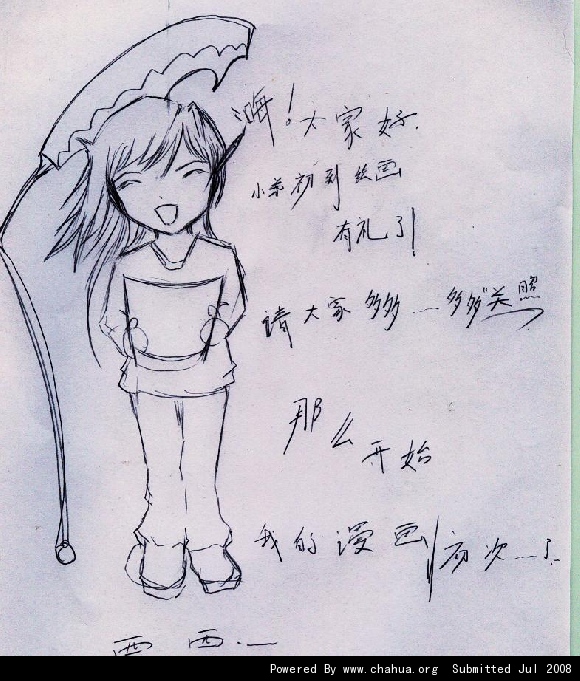 嗨！大家好.
小弟初到绘画
有礼了！
请大家多多一多多"关照
那么开始
我的漫画/初次一了
西西.一
Powered By www.chahua.org Submitted Jul 2008